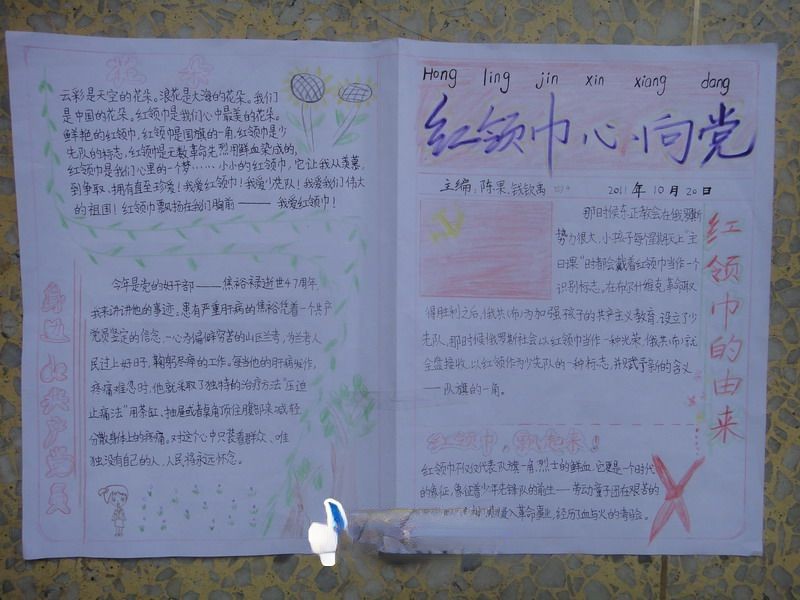 花朵
云彩是天空的花朵。浪花是大海的花朵。我们
是中国的花朵。红领巾是我们心中最美的花朵。
鲜艳的红领巾,红领巾是国旗的一角,红领巾是少
先队的标志,红领巾是无数革命先烈用鲜血染成的,
红领巾是我们心里的一个梦……小小的红领巾,它让我从羡慕,
到争取,拥有直至珍爱!我爱红领巾!我爱少先队!我爱我们伟大
的祖国!红领巾飘扬在我们胸前——我爱红领巾!
身边的共产党员
今年是党的好干部——焦裕禄逝世47周年,
我来讲讲他的事迹。患有严重肝病的焦裕禄凭着一个共产
党员坚定的信念,一心为偏僻穷苦的山区兰考,为兰考人
民过上好日子,鞠躬尽瘁的工作。每当他的肝病发作,
疼痛难忍时,他就采取了独特的治疗方法“压迫
止痛法”用茶缸、抽屉或者桌角顶住腹部来减轻
分散身体上的疼痛。对这个心中只装着群众、唯
独没有自己的人,人民将永远怀念。
Hong ling jin xin xiang dang
红领巾心向党
主编:陈果,钱钦禹
2011年10月20日
红领巾的由来
那时候东正教会在俄罗斯
势力很大,小孩子每个星期天上“主
日课”时都会戴着红领巾当作一个
识别标志。在布尔什维克革命取
得胜利之后,俄共(布)为加强孩子的共产主义教育,设立了少
先队,那时候俄罗斯社会以红领巾当作一种光荣,俄共(布)就
全盘接收,以红领作为少先队的一种标志,并赋予新的含义
——队旗的一角。
红领巾,飘起来!
红领巾不仅仅代表队旗一角,烈士的鲜血,它更是一个时代
的象征,象征着少年先锋队的前生——劳动童子团在艰苦的
投入革命事业,经历了血与火的考验。